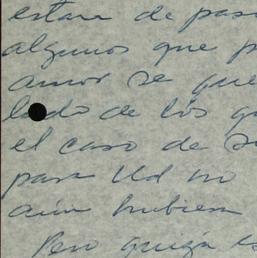 estara de pas
algunos que p
amor se que
lado de los q
el caso de s
para Ud no
aún hubiera
Pero quizá es